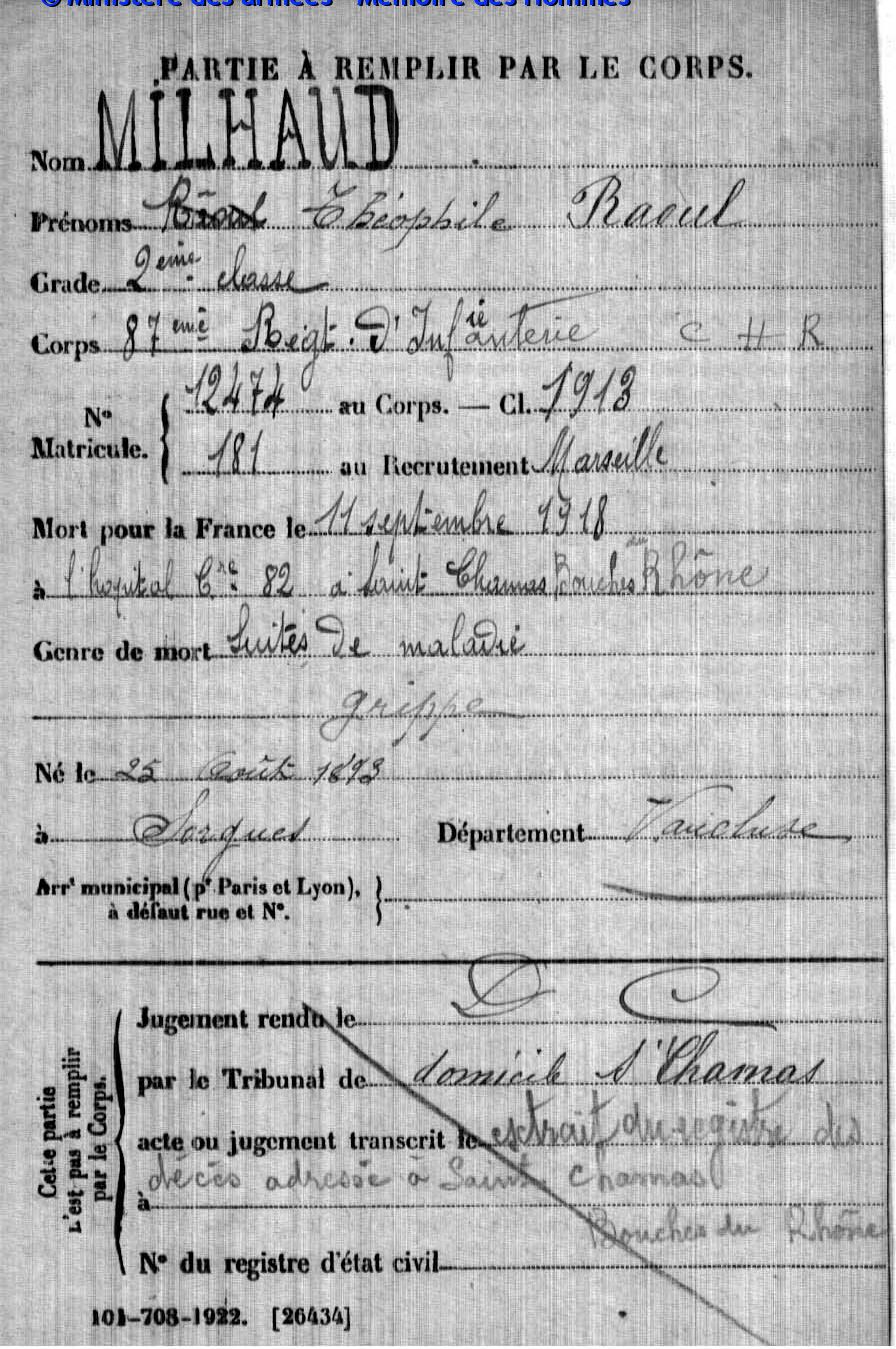 © Ministère des armées - Mémoire des Hommes
PARTIE À REMPLIR PAR LE CORPS.
Nom MILHAUD
Prénoms Raoul Théophile Raoul
Grade 2eme classe
Corps 87eme Regt. d'Infanterie C H R
N° Matricule. { 12474 au Corps. — Cl. 1913
181 au Recrutement Marseille
Mort pour la France le 11 septembre 1918
à l'hopital Cre 82 à Saint Chamas Bouches du Rhône
Genre de mort Suites de maladie
grippe
Né le 25 Août 1893
à Sorgues Département Vaucluse
Arrt municipal (pr Paris et Lyon),
à défaut rue et N°.
Cette partie n'est pas à remplir par le Corps.
Jugement rendu le D C
par le Tribunal de domicile St Chamas
acte ou jugement transcrit le extrait du registre des
décès adressé à Saint Chamas
à
Bouches du Rhône
N° du registre d'état civil
101-708-1922. [26434]